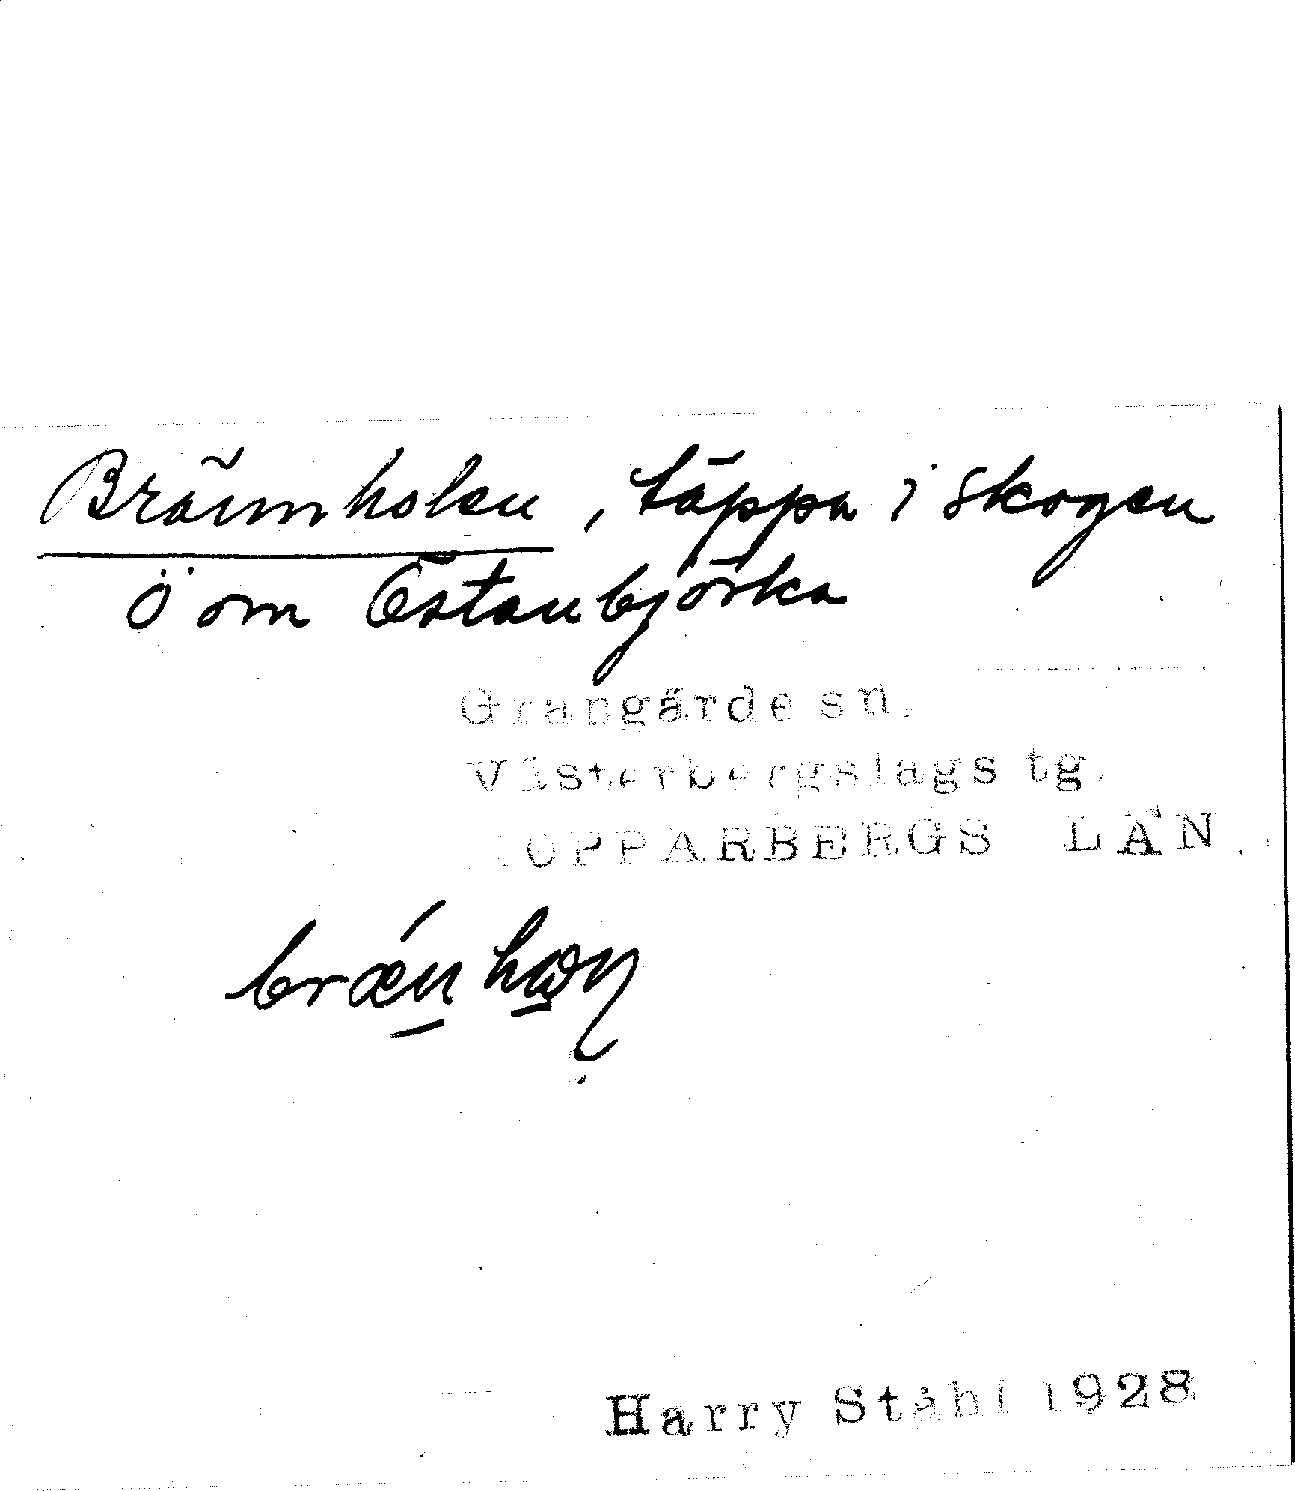 Brännholen, täppa i skogen
Ö om Östanbjörka
Grangärde sn.
Västerbergslags tg.
KOPPARBERGS LÄN.
Harry Ståhl 1928